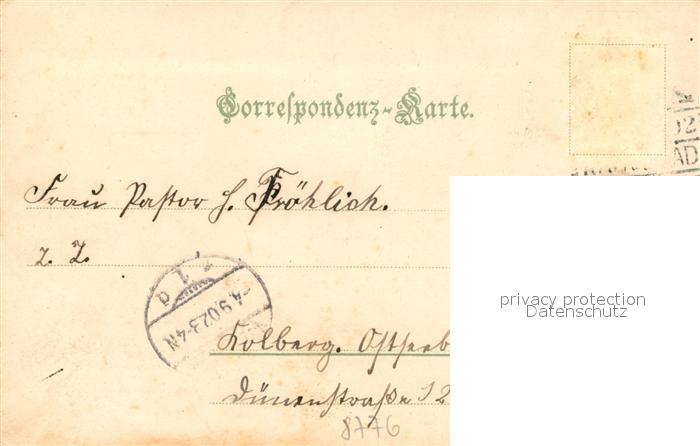 Correspondenz-Karte.
Frau Pastor H. Fröhlich.
z. Z.
-4.9.02.3-4N
Kolberg. Ostseeb
Dünenstraße 12
8776
privacy protection
Datenschutz